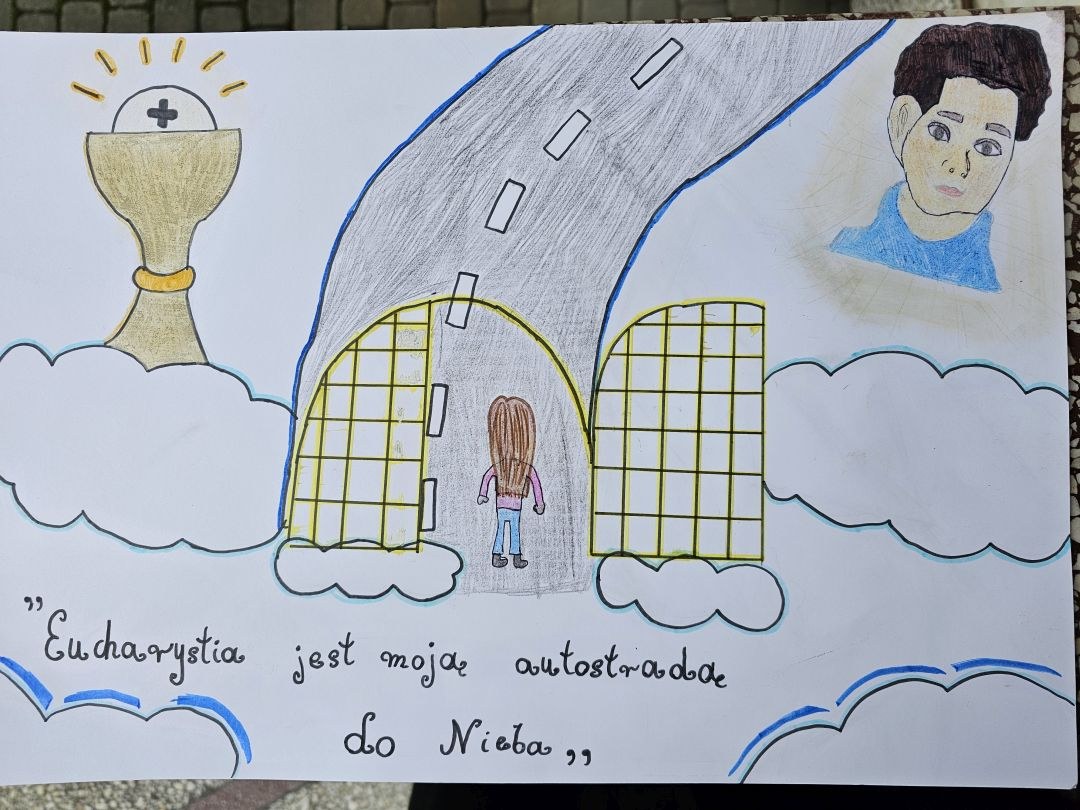 "Eucharystia jest moją autostradą
do Nieba„